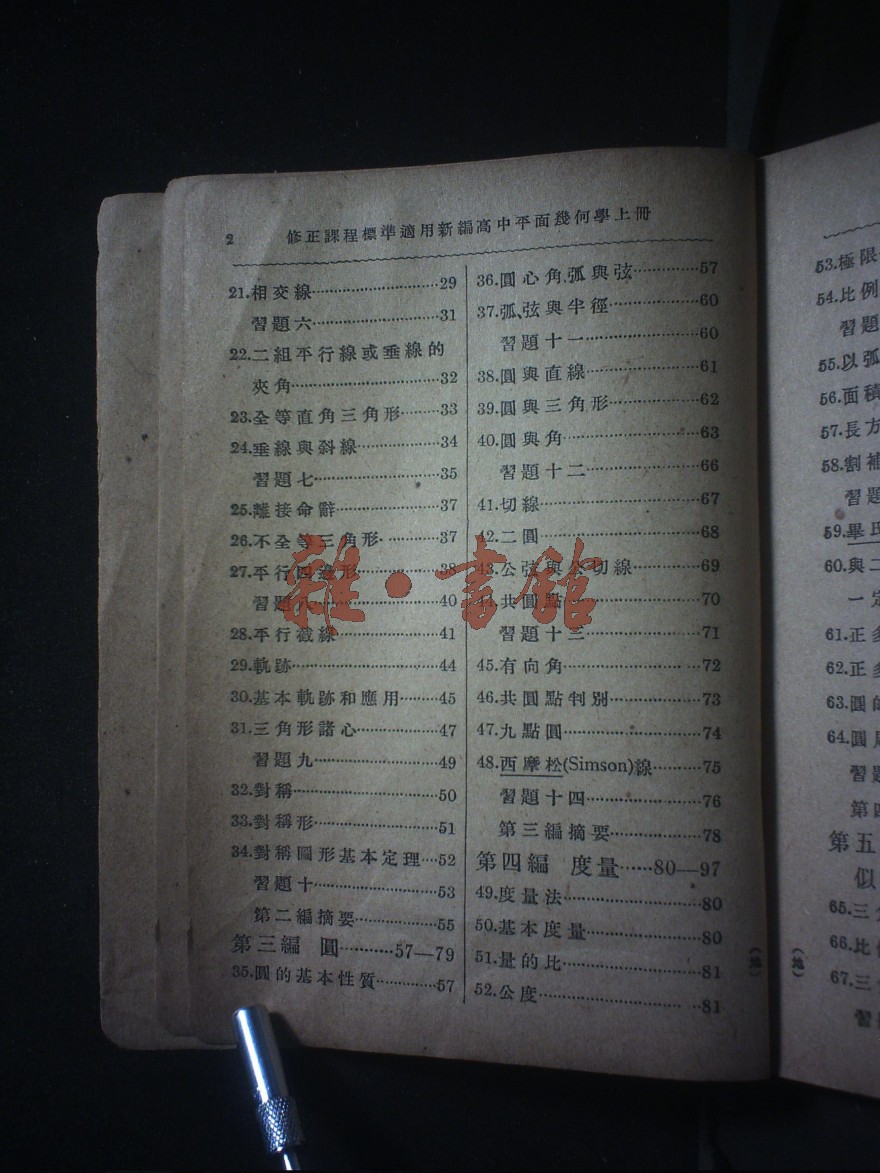 2 修正課程標準適用新編高中平面幾何學上冊
21.相交線…………29
習題六…………31
22.二組平行線或垂線的
夾角…………32
23.全等直角三角形……33
24.垂線與斜線…………34
習題七…………35
25.離接命辭…………37
26.不全等三角形…………37
27.平行四邊形…………38
習題八…………40
28.平行截線…………41
29.軌跡…………44
30.基本軌跡和應用……45
31.三角形諸心…………47
習題九…………49
32.對稱…………50
33.對稱形…………51
34.對稱圖形基本定理…52
習題十…………53
第二編摘要…………55
第三編 圓………57—79
35.圓的基本性質…………57
36.圓心角、弧與弦…………57
37.弧、弦與半徑…………60
習題十一…………60
38.圓與直線…………61
39.圓與三角形…………62
40.圓與角…………63
習題十二…………66
41.切線…………67
42.二圓…………68
43.公弦與公切線…………69
44.共圓點…………70
習題十三…………71
45.有向角…………72
46.共圓點判別…………73
47.九點圓…………74
48.西摩松(Simson)線………75
習題十四…………76
第三編摘要…………78
第四編 度量……80—97
49.度量法…………80
50.基本度量…………80
51.量的比…………81
52.公度…………81
(地)
(地)
53.極限
54.比例
習題
55.以弧
56.面積
57.長方
58.割補
習題
59.畢氏
60.與二
一定
61.正多
62.正多
63.圓的
64.圓周
習題
第四
第五
似
65.三角
66.比例
67.三
習題
雜·書館